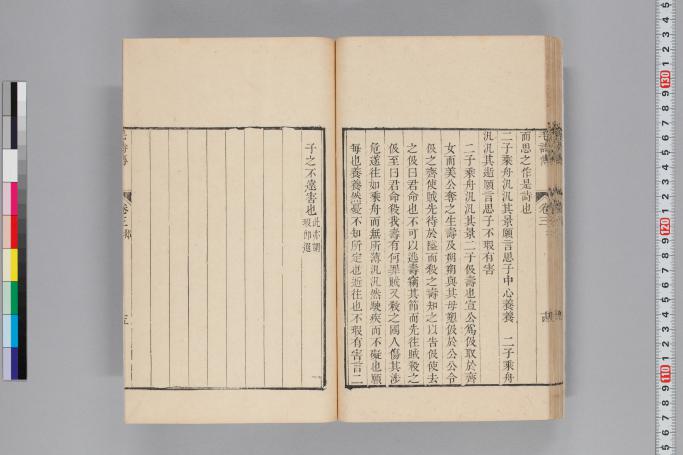 而思之作是詩也
二子乘舟汎汎其景願言思子中心養養　二子乘舟
汎汎其逝願言思子不瑕有害
二子乘舟汎汎其景二子伋壽也宣公爲伋取於齊
女而美公奪之生壽及朔朔與其母愬伋於公公令
伋之齊使賊先待於隘而殺之壽知之以告伋使去
之伋曰君命也不可以逃壽竊其節而先往賊殺之
伋至曰君命殺我壽有何罪賊又殺之國人傷其涉
危遂往如乘舟而無所薄汎汎然駛疾而不礙也願
每也養養然憂不知所定也逝往也不瑕有害言二
子之不遠害也
毛詩傳
卷三